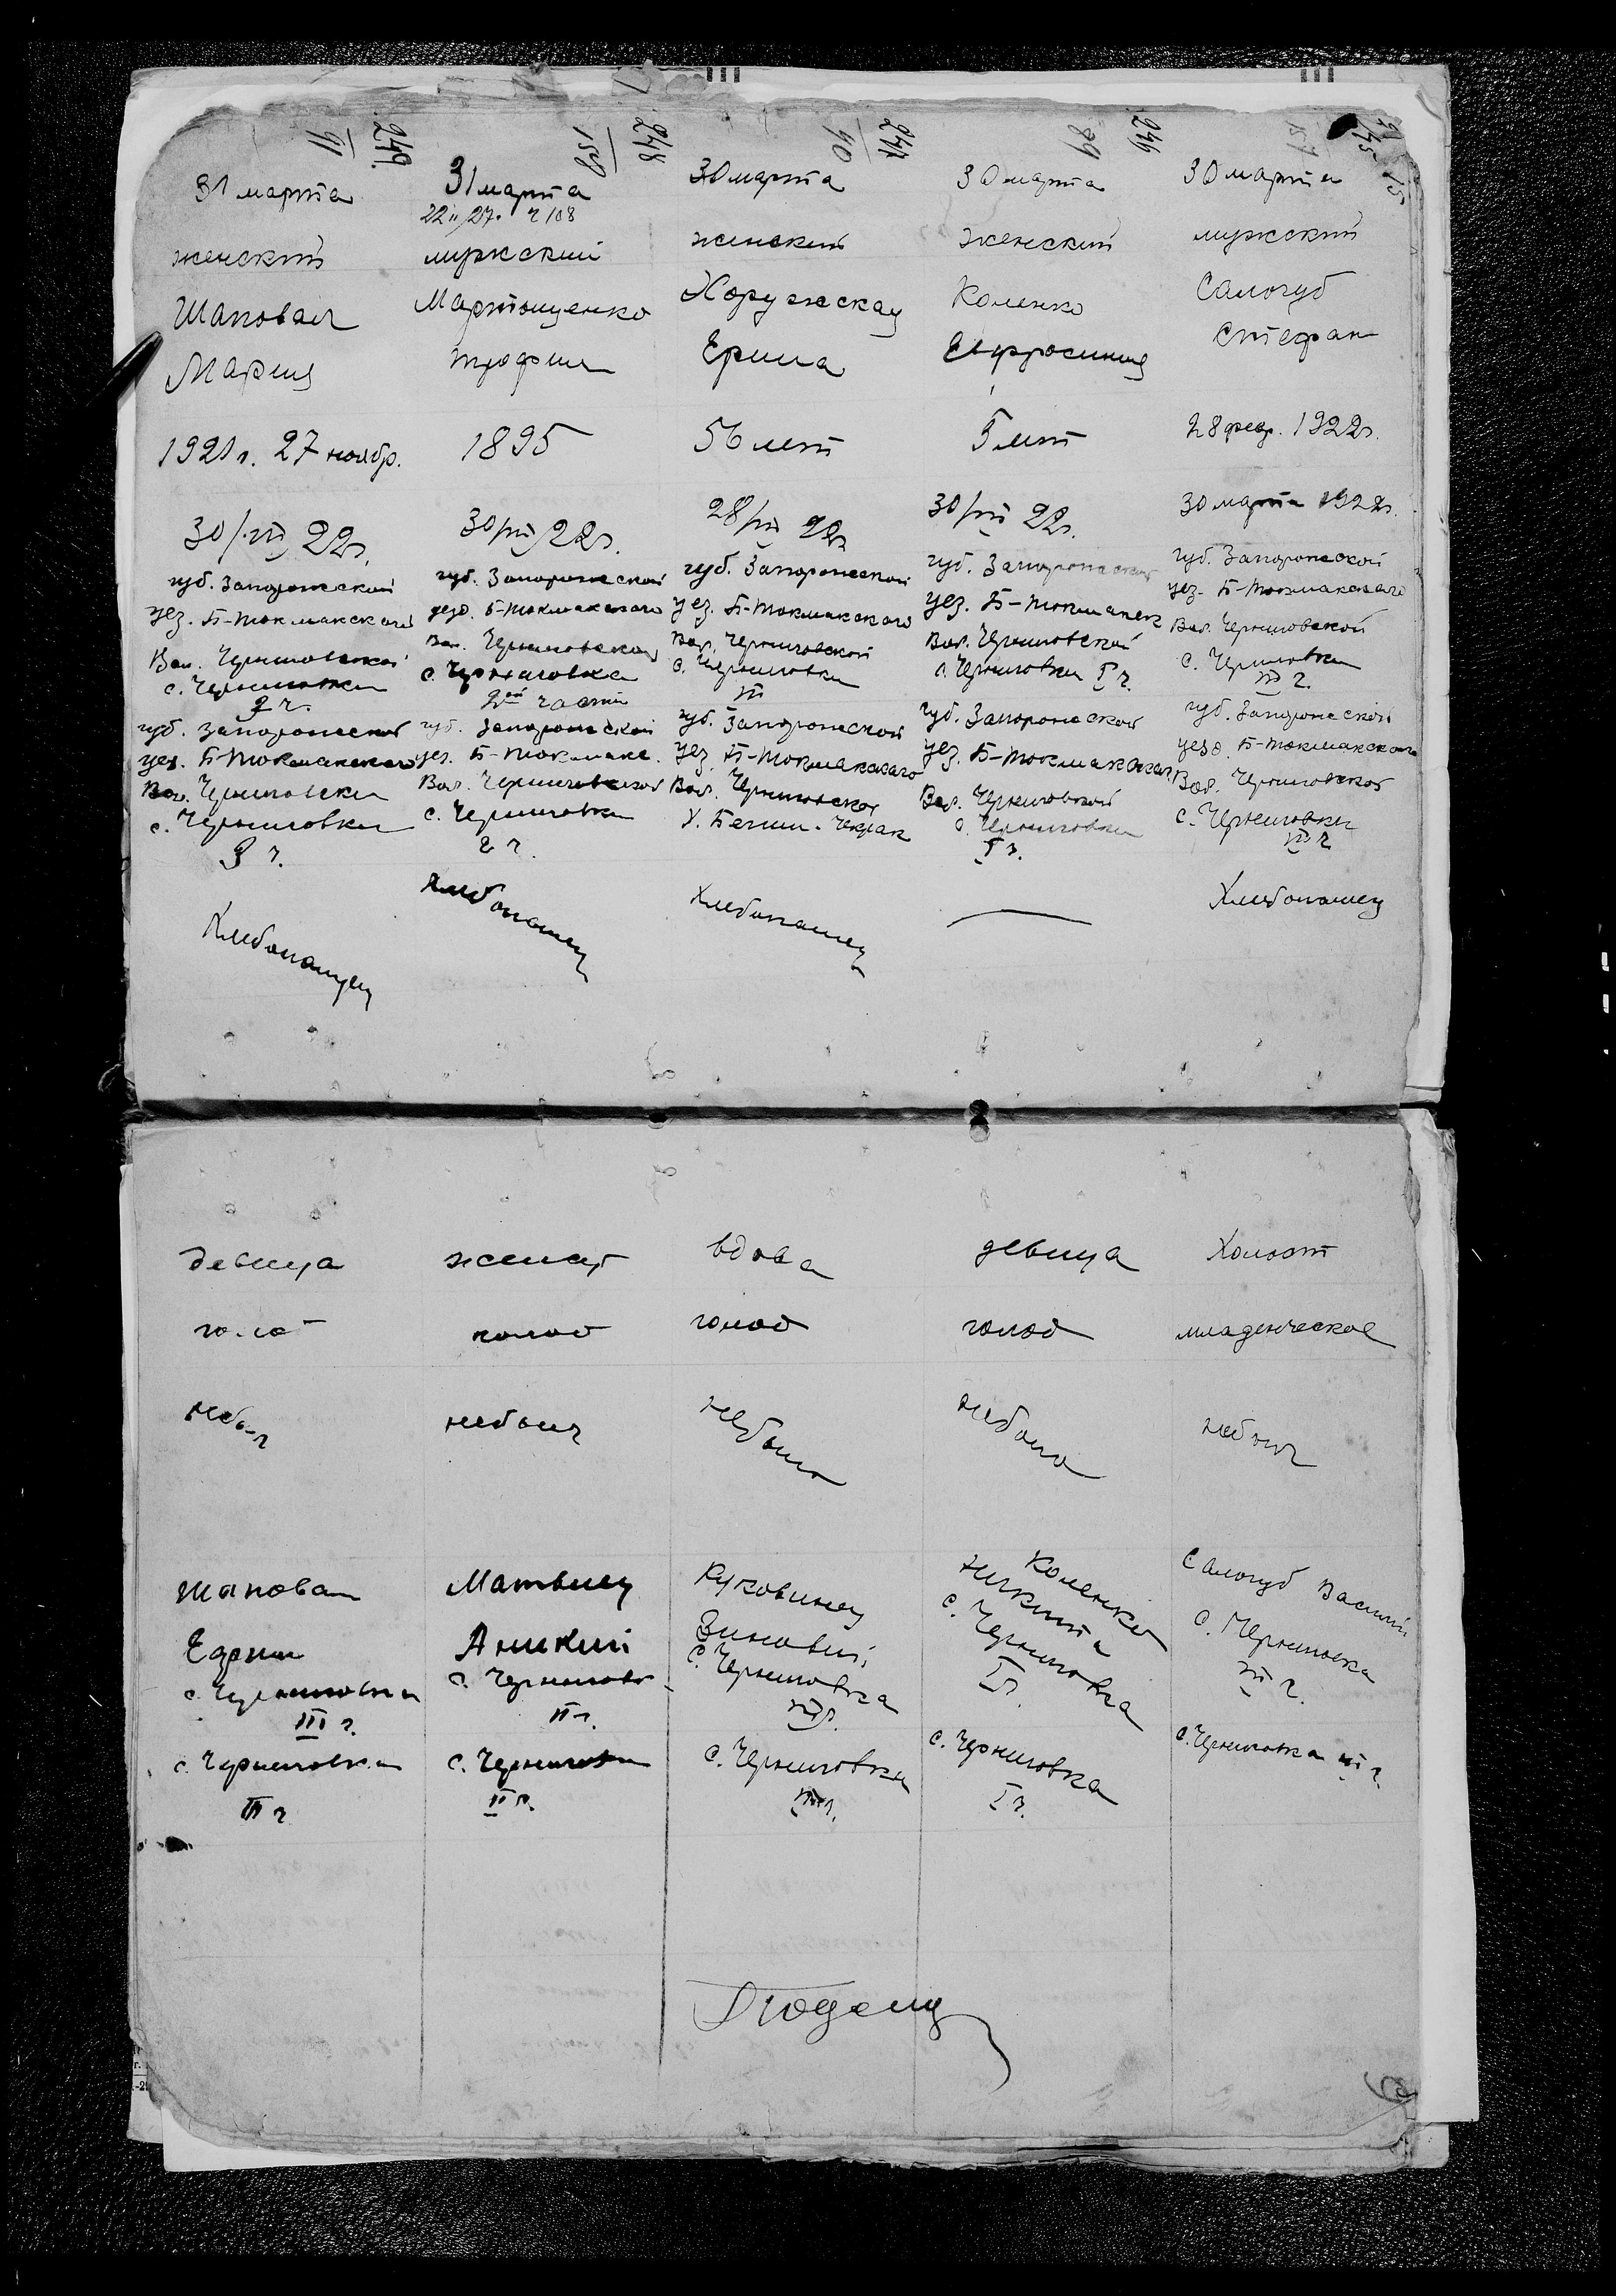 249.
91
31 марта
женский
Шаповал
Мария
1921 г. 27 ноябр.
30/III 22г.
губ. Запорожской
уез. Б-Токмакского
Вол. Черниговской
с. Черниговки
2 ч.
губ. Запорожской
уез. Б-Токмакского
Вол. Черниговски
с. Черниговки
3 ч.
Хлебопашец
248
158
31 марта
мужский
Мартыщенко
Трофим
1895
30/III 22г.
губ. Запорожской
уезд. Б-Токмакского
Вол. Черниговской
с. Черниговка
2ой части
губ. Запорожской
уез. Б-Токмакс.
Вол. Черниговской
с. Черниговки
2 ч.
Хлебопашец
247
90
30 марта
женский
Хоружская
Ерина
56 лет
28/III 22г.
губ. Запорожской
уез. Б-Токмакского
Вол. Черниговской
с. Черниговки
III
губ. Запорожской
уез. Б-Токмакского
Вол. Черниговской
Х. Бегим-Чекрак
Хлебопашец
246
89
30 марта
женский
Коленко
Евфросиния
5 лет
30/III 22г.
губ. Запорожской
уез. Б-Токмакск
Вол. Черниговской
с. Черниговки I ч.
губ. Запорожской
уез. Б-Токмакског
Вол. Черниговской
с. Черниговки
I ч.
30 марта
мужский
Салогуб
Стефан
28 февр. 1922г.
30 марта 1922г.
губ. Запорожской
уез. Б-Токмакского
Вол. Черниговской
с. Черниговки
III ч.
губ. Запорожской
уезд. Б-Токмакского
Вол. Черниговской
с. Черниговки
III ч
Хлебопашец
девица
голод
небыл
Шаповал
Ефрим
с. Черниговка
III ч.
с. Черниговка
III ч
женат
голод
небыл
Матвиец
Аникий
с. Чернигов
II ч.
с. Черниговки
II ч.
вдова
голод
небыло
Куковинец
Зиновий
с. Черниговка
III ч.
с. Черниговка
III ч.
девица
голод
небыло
Коленко
Никита
с. Черниговка
I ч.
с. Черниговка
I ч.
Холост
младенческое
небыл
Салогуб Василий
с. Черниговка
III ч.
с. Черниговка III ч